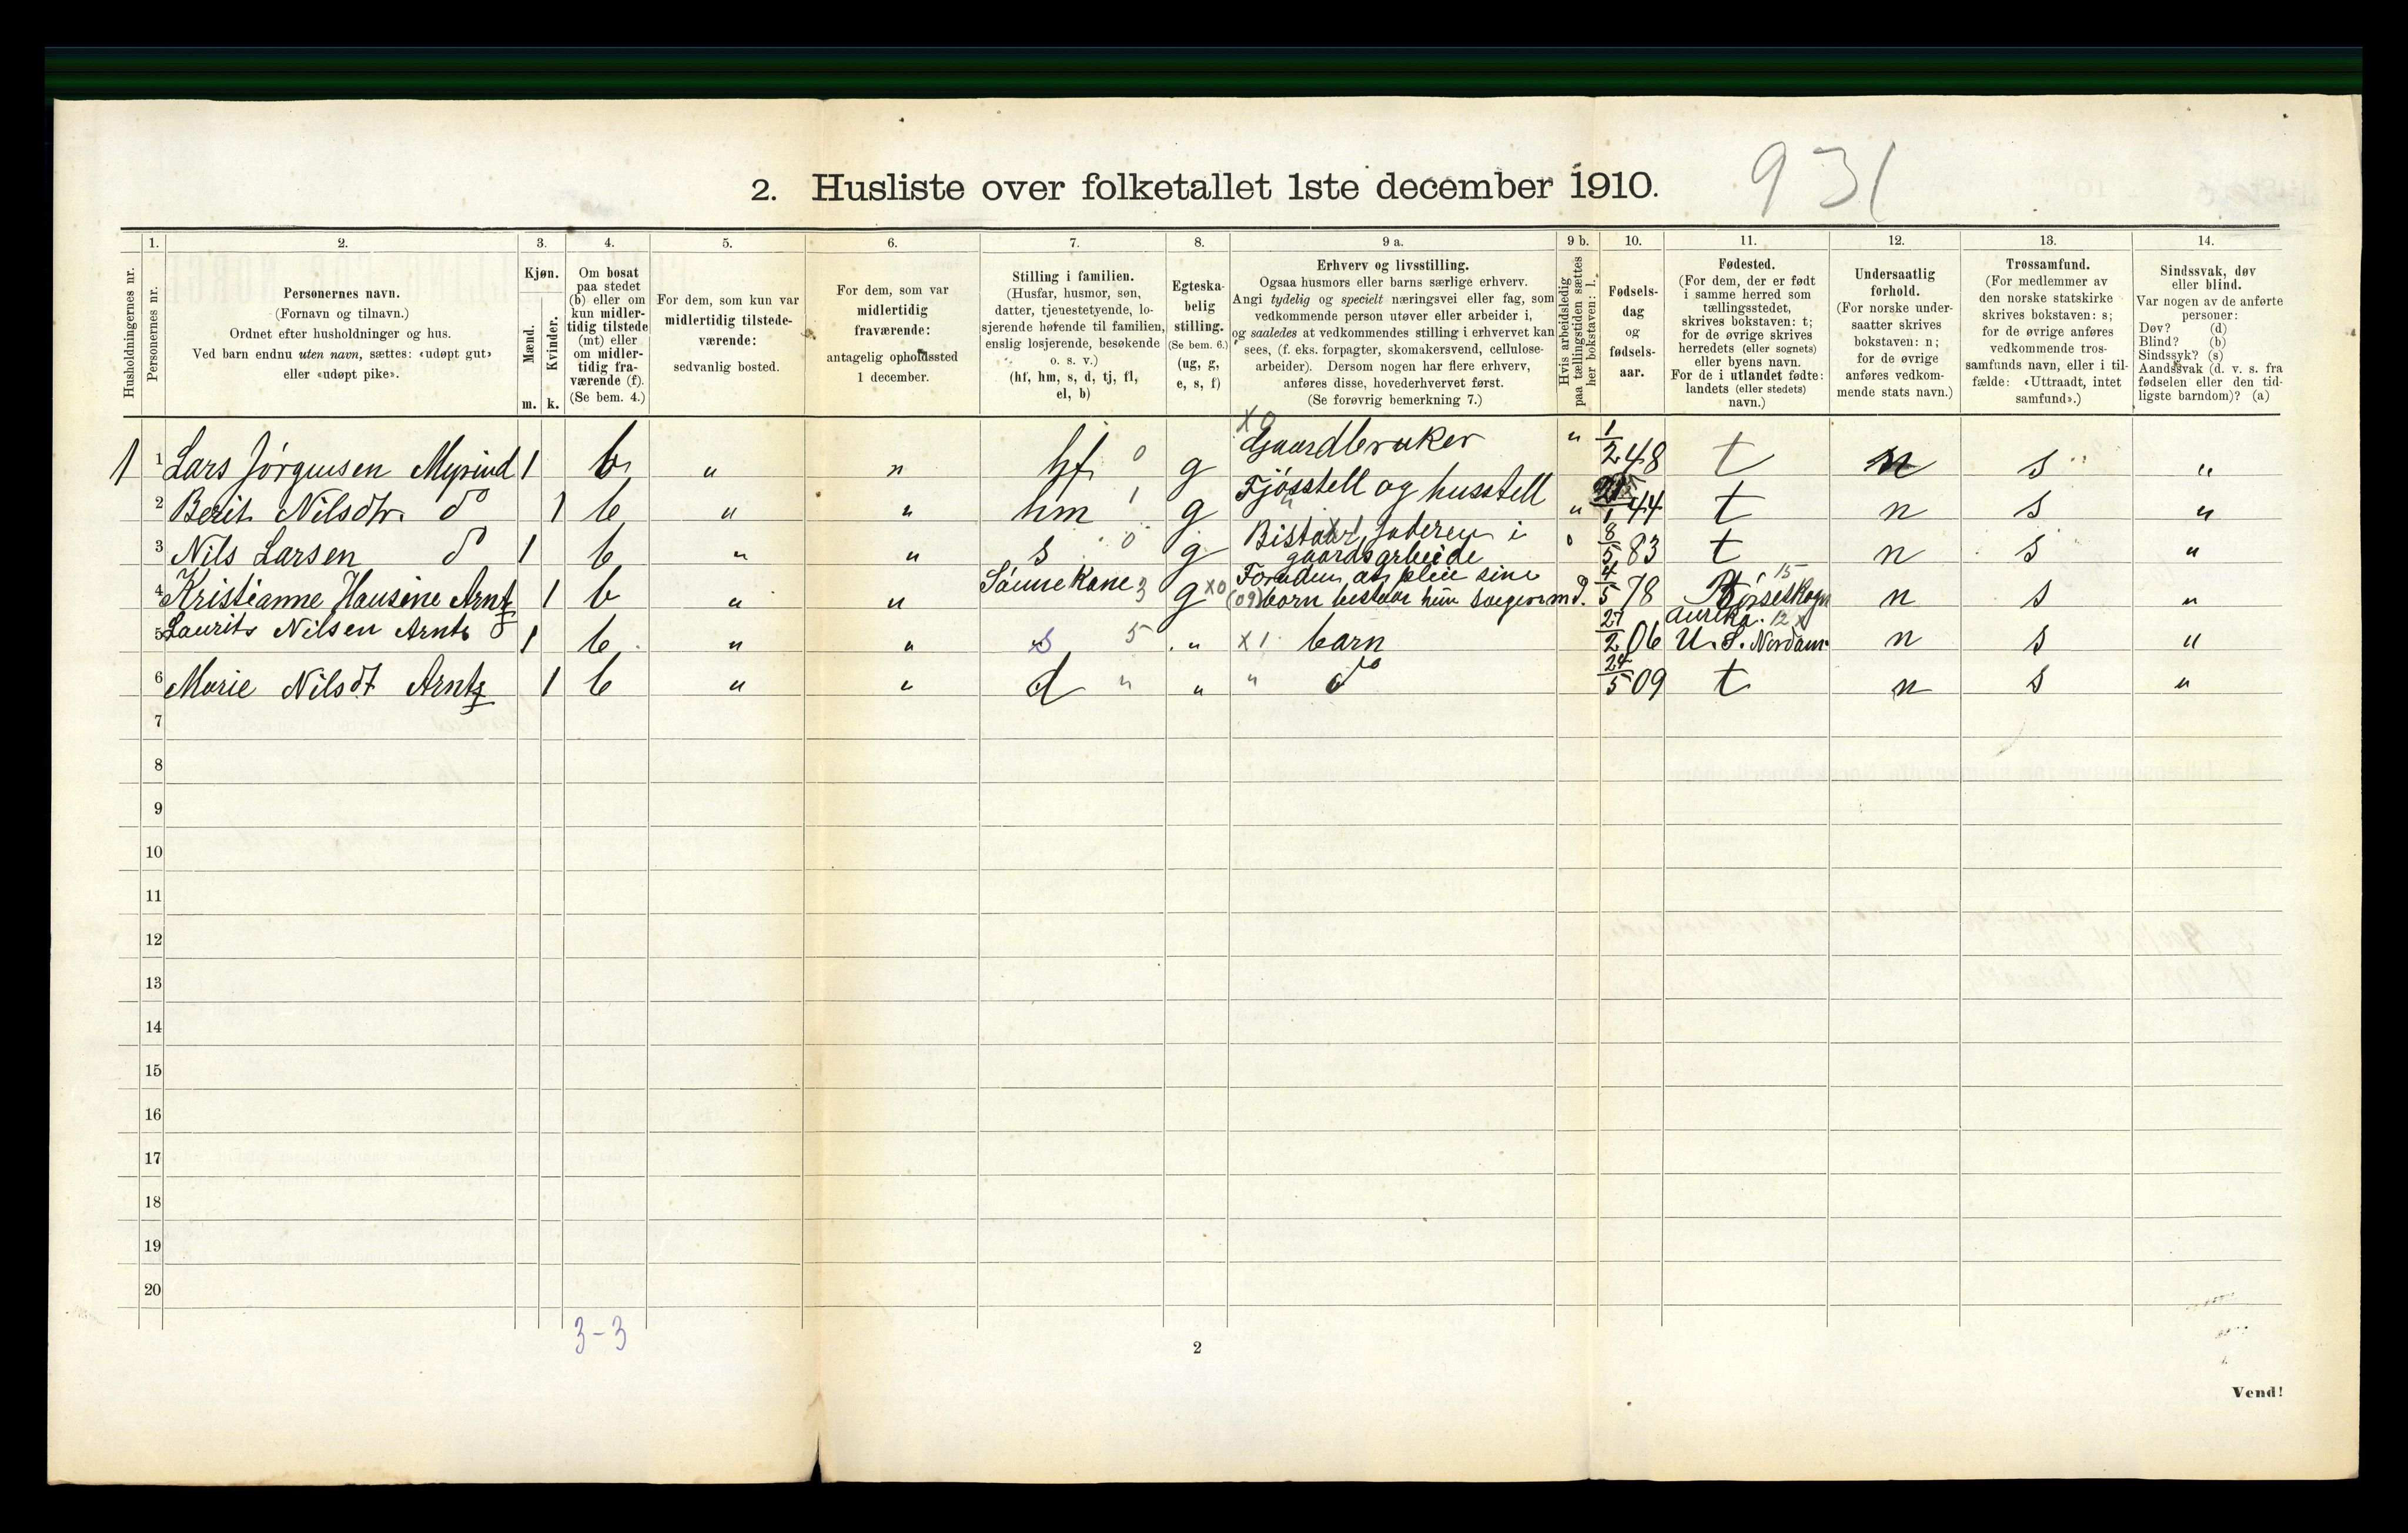 2. Husliste over folketallet 1ste december 1910.
931
Husholdningernes nr.
1.
Personernes nr.
2.
Personernes navn.
(Fornavn og tilnavn.)
Ordnet efter husholdninger og hus.
Ved barn endnu uten navn, sættes: «udøpt gut»
eller «udøpt pike».
3.
Kjøn.
Mænd.
Kvinder.
m. k.
4.
Om bosat
paa stedet
(b) eller om
kun midler-
tidig tilstede
(mt) eller
om midler-
tidig fra-
værende (f).
(Se bem. 4.)
5.
For dem, som kun var
midlertidig tilstede-
værende:
sedvanlig bosted.
6.
For dem, som var
midlertidig
fraværende:
antagelig opholdssted
1 december.
7.
Stilling i familien.
(Husfar, husmor, søn,
datter, tjenestetyende, lo-
sjerende hørende til familien,
enslig losjerende, besøkende
o. s. v.)
(hf, hm, s, d, tj, fl,
el, b)
8.
Egteska-
belig
stilling.
(Se bem. 6.)
(ug, g,
e, s, f)
9 a.
Erhverv og livsstilling.
Ogsaa husmors eller barns særlige erhverv.
Angi tydelig og specielt næringsvei eller fag, som
vedkommende person utøver eller arbeider i,
og saaledes at vedkommendes stilling i erhvervet kan
sees, (f. eks. forpagter, skomakersvend, cellulose-
arbeider). Dersom nogen har flere erhverv,
anføres disse, hovederhvervet først.
(Se forøvrig bemerkning 7.)
9 b.
Hvis arbeidsledig
paa tællingstiden sættes
her bokstaven: l.
10.
Fødsels-
dag
og
fødsels-
aar.
11.
Fødested.
(For dem, der er født
i samme herred som
tællingsstedet,
skrives bokstaven: t;
for de øvrige skrives
herredets (eller sognets)
eller byens navn.
For de i utlandet fødte:
landets (eller stedets)
navn.)
12.
Undersaatlig
forhold.
(For norske under-
saatter skrives
bokstaven: n;
for de øvrige
anføres vedkom-
mende stats navn.)
13.
Trossamfund.
(For medlemmer av
den norske statskirke
skrives bokstaven: s;
for de øvrige anføres
vedkommende tros-
samfunds navn, eller i til-
fælde: «Uttraadt, intet
samfund».)
14.
Sindssvak, døv
eller blind.
Var nogen av de anførte
personer:
Døv? (d)
Blind? (b)
Sindssyk? (s)
Aandssvak (d. v. s. fra
fødselen eller den tid-
ligste barndom)? (a)
1 1 Lars Jørgensen 1 b " " hf 0 g X0 Gaardbruker " 1/2 48 t n s "
2 Berit Nilsdtr. do 1 b " " hm 1 g Fjösstell og husstell " 1/44 t n s "
3 Nils Larsen do 1 b " " s 0 g faderen i gaardsarbeide 8/5 83 t n s "
4 Kristianne Hansine Arntz 1 b " " Sönnekone 3 g X0 Foruden at pleie sine (09) barn 4/5 78 Börseskogn 15 n s "
5 Laurits Nilsen Arntz do 1 b " " s 5 " X1 barn 27/2 06 U. S. Nordam. 12 n s "
6 Marie Nilsdt Arntz 1 b " " d " " " do 24/5 09 t n s "
7
8
9
10
11
12
13
14
15
16
17
18
19
20
3-3
2
Vend!